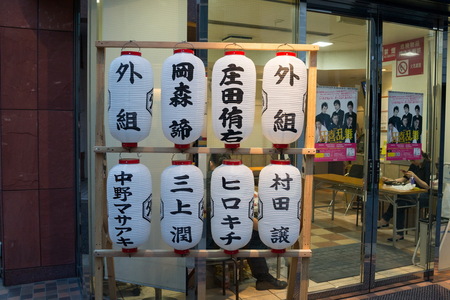 外組
岡森 諦
庄田侑右
外組
中野マサアキ
三上 潤
ヒロキチ
村田 譲